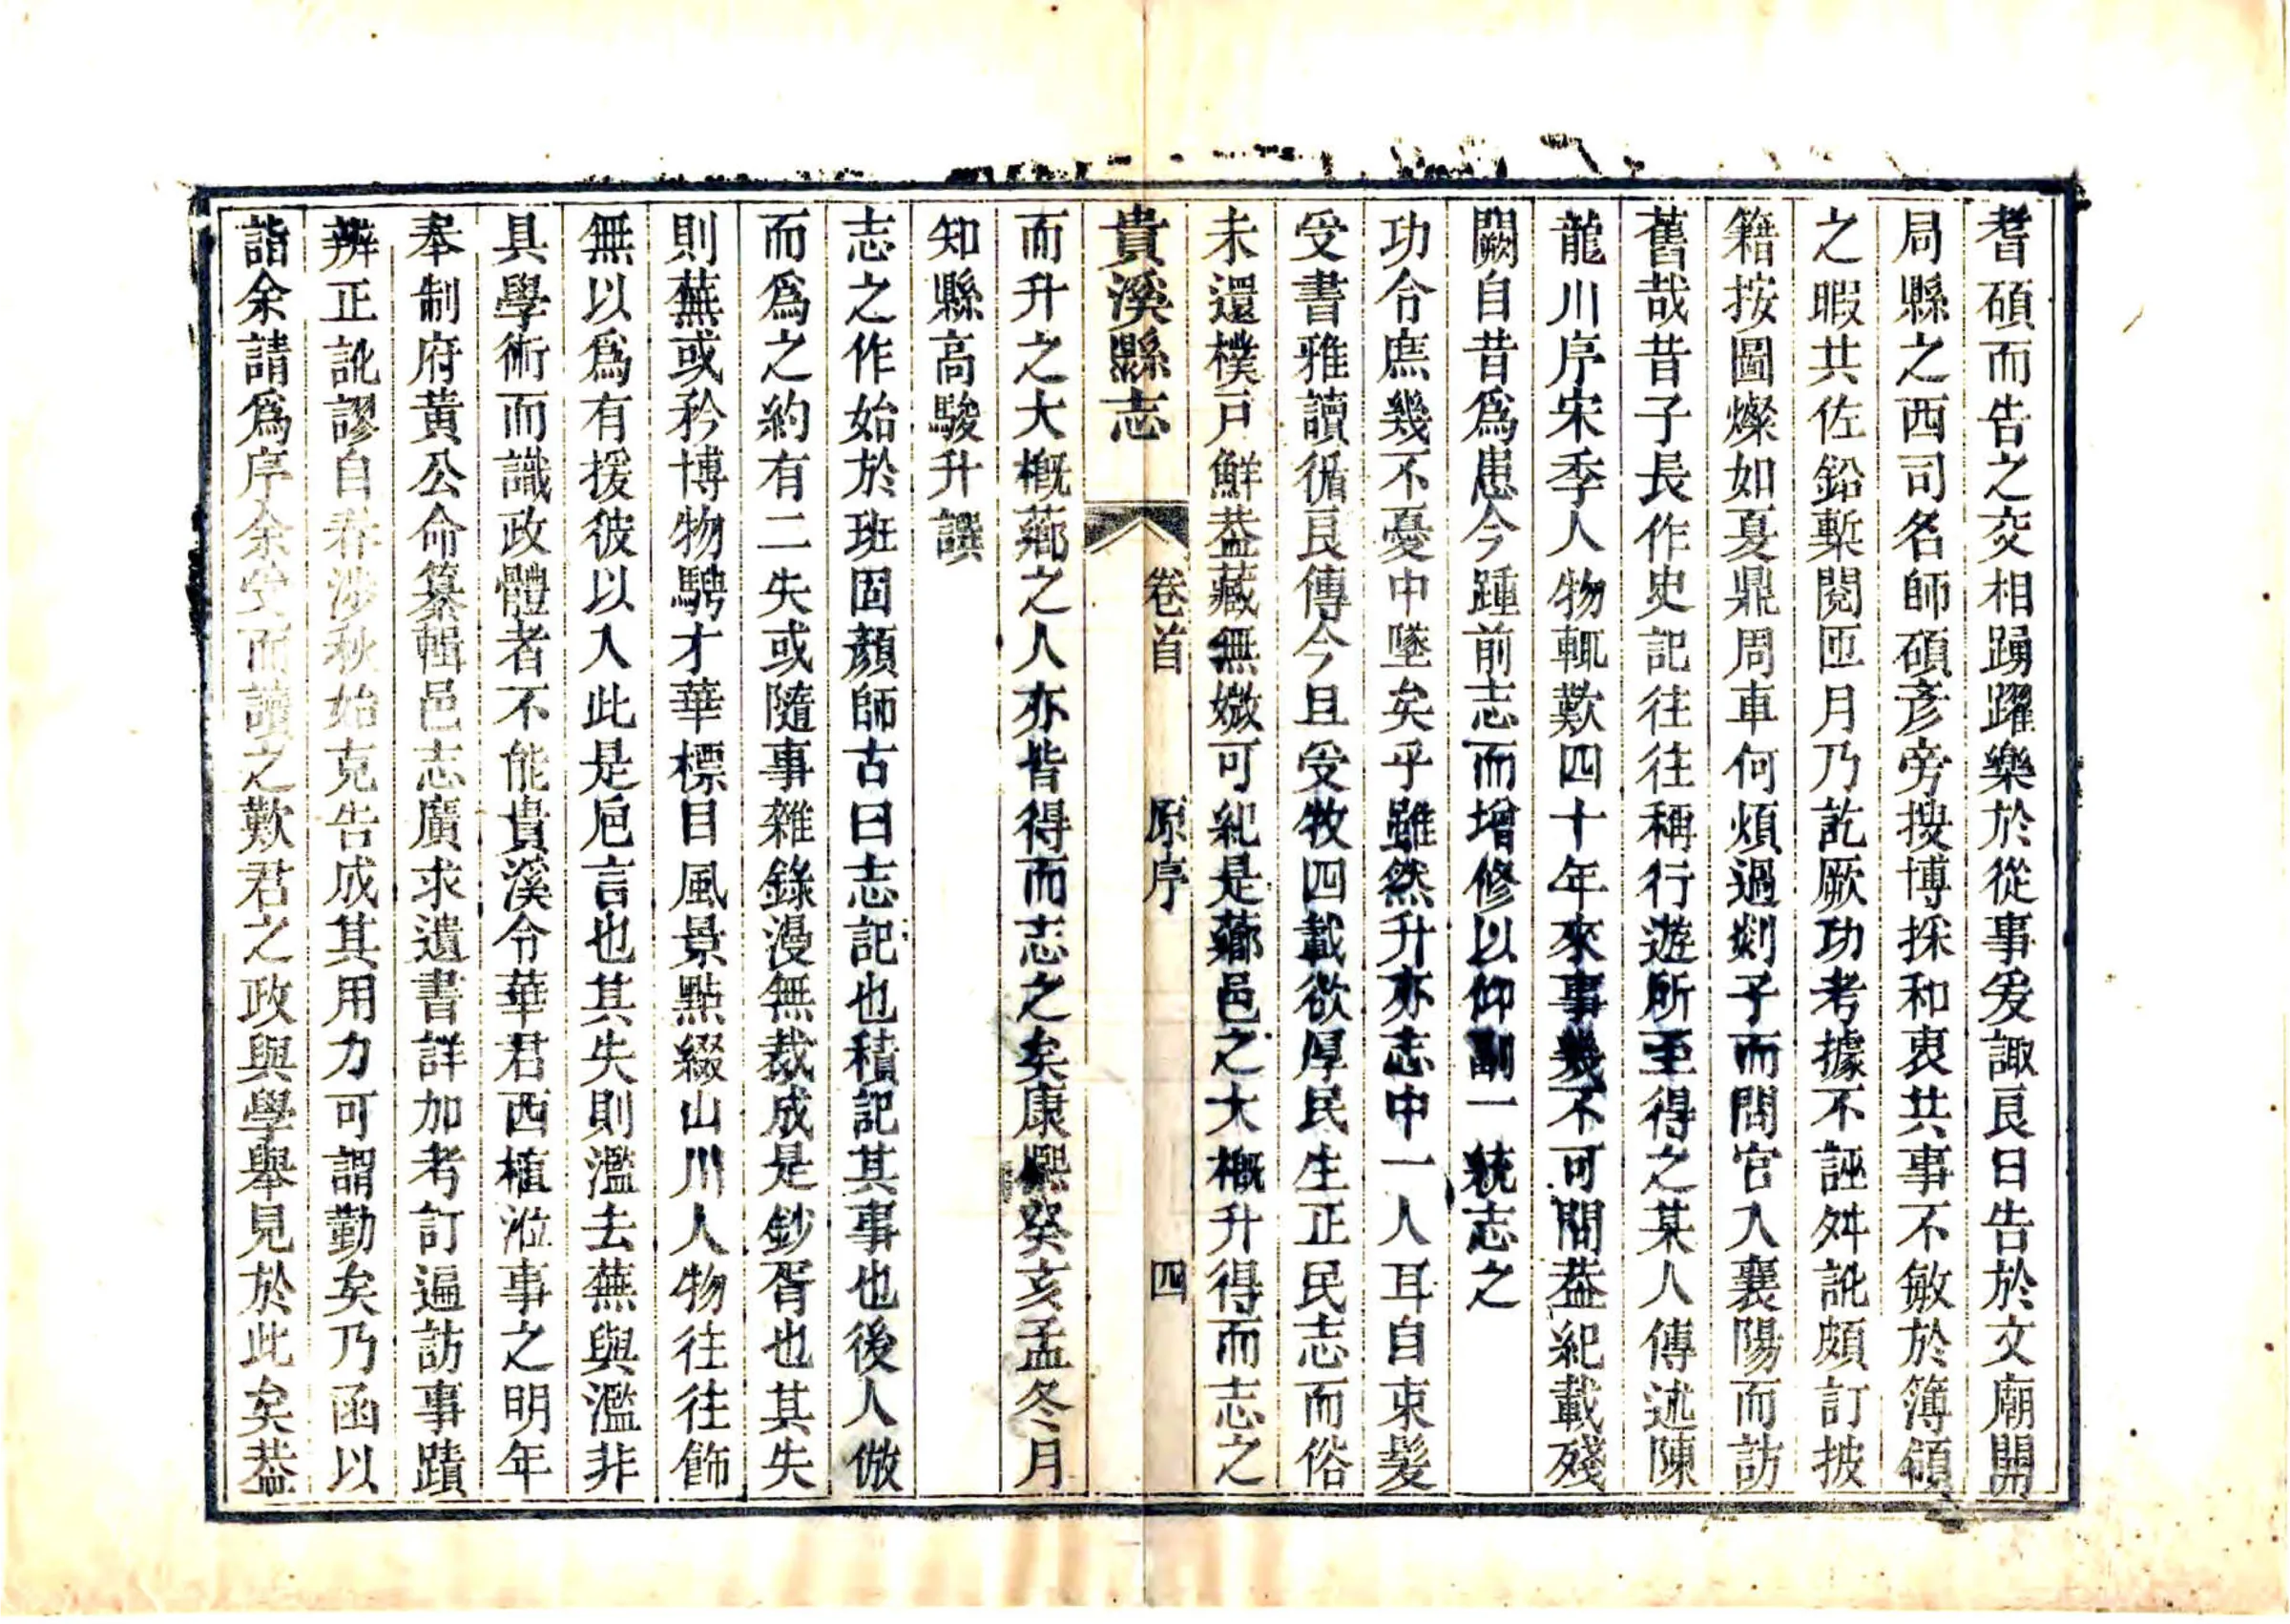 耆碩而告之交相踴躍樂於從事爰諏良日告於文廟開
局縣之西司名師碩彥旁搜博採和衷共事不敏於簿領
之暇共佐鉛槧閱匝月乃訖厥功考據不誣舛訛頗訂披
籍按圖燦如夏鼎周車何煩過剡子而問官入襄陽而訪
舊哉昔子長作史記往往稱行遊所至得之某人傳述陳
龍川序宋季人物輒歎四十年來事幾不可問葢紀載殘
闕自昔爲患今踵前志而增修以仰副一統志之
功令庶幾不憂中墜矣乎雖然升亦志中一人耳自束髮
受書雅讀循良傳今且受牧四載欲厚民生正民志而俗
未還樸戸鮮葢藏無媺可紀是薌邑之大槪升得而志之
貴溪縣志
卷首
原序
四
而升之大槪薌之人亦皆得而志之矣康熙癸亥孟冬月
知縣高駿升譔
志之作始於班固顏師古曰志記也積記其事也後人倣
而爲之約有二失或隨事雜錄漫無裁成是鈔胥也其失
則蕪或矜博物騁才華標目風景點綴山川人物往往飾
無以爲有援彼以入此是巵言也其失則濫去蕪與濫非
具學術而識政體者不能貴溪令華君西植涖事之明年
奉制府黃公命纂輯邑志廣求遺書詳加考訂遍訪事蹟
辨正訛謬自春涉秋始克告成其用力可謂勤矣乃函以
詣余請爲序余受而讀之歎君之政與學舉見於此矣葢